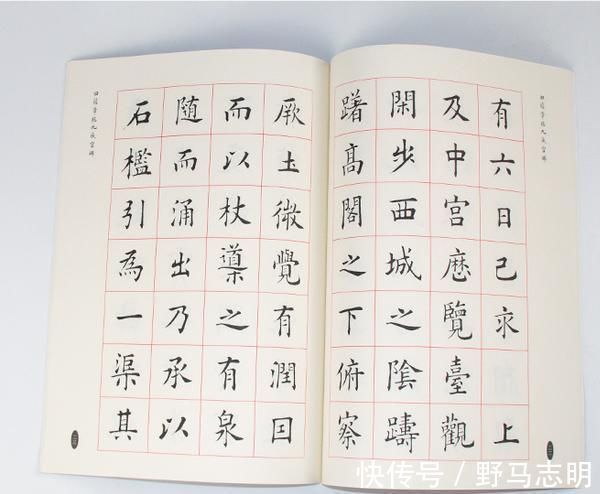 田蘊章臨九成宮碑
有六日己亥上
及中宮歷覽臺觀
閑步西城之陰躊
躇高閣之下俯察
厥土微覺有潤因
而以杖導之有泉
随而涌出乃承以
石檻引為一渠其
田蘊章臨九成宮碑
快传号 / 野马志明